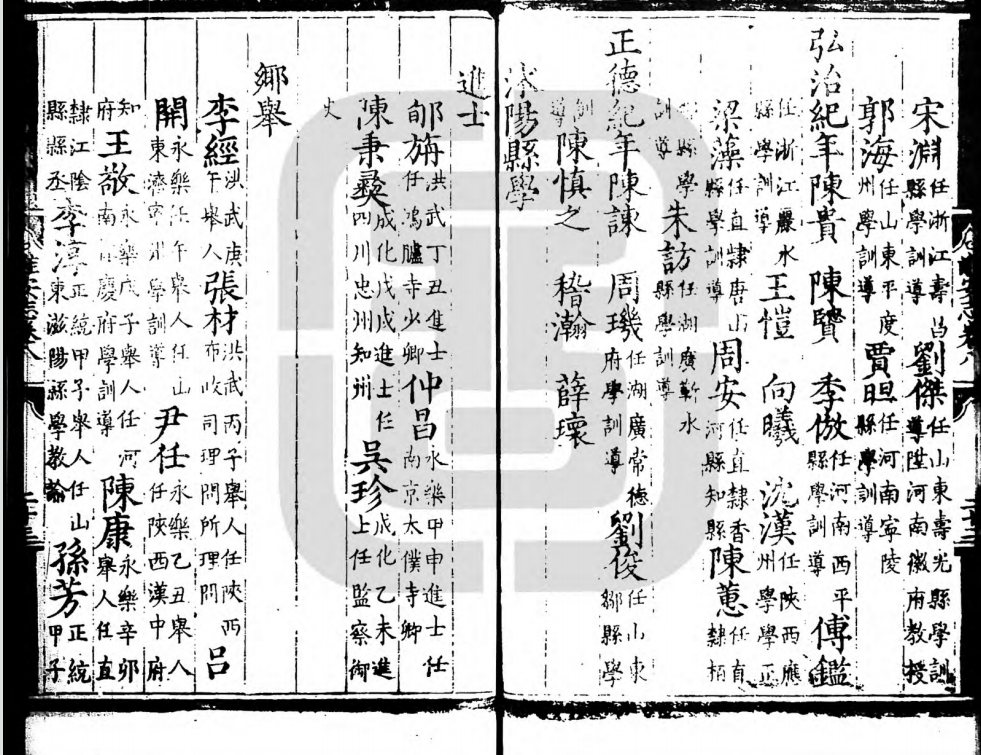 宋淵任浙江壽昌縣學訓導劉傑任山東壽光縣學訓導陞河南徽府教授
郭海任山東平度州學訓導賈旺任河南寧陵縣學訓導
弘治紀年陳貴 陳贒 李倣任河南西平縣學訓導傅鑑
任浙江麗水縣學訓導王愷 向曦 沈漢任陜西應州學學正
梁藻任直隸唐山縣學訓導周安任直隸香河縣知縣陳蕙任直隸栢
縣學訓導朱訪任湖廣蘄水縣學訓導
正德紀年陳諫 周璣任湖廣常德府學訓導劉俊任山東鄒縣學
訓導陳慎之 嵇瀚 薛瓌
沭陽縣學
進士
郇旃洪武丁丑進士任鴻臚寺少卿仲昌永樂甲申進士任南京太僕寺卿
陳秉彝成化戊戌進士任四川忠州知州吳珍成化乙未進上任監察御
史
鄉舉
李經洪武庚午舉人張材洪武丙子舉人任陜西布政司理問所理問呂
開永樂壬午舉人任山東濟寧州學訓導尹任永樂乙丑舉人任陜西漢中府
知府王敬永樂戊子舉人任河南慶府學訓導陳康永樂辛卯舉人任直
隸江陰縣縣丞李淳正統甲子舉人任山東滋陽縣學教諭孫芳正統甲子